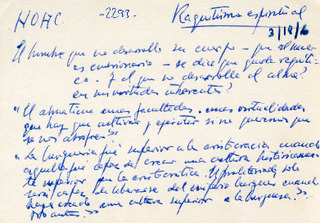 HOAC. -2293- Raquitismo espiritual
2/18/6
El hombre que no desarrolla su cuerpo - que al nacer
es embrionario - se dice que queda raquíti-
co. ¿Y el que no desarrolla el alma?
en sus virtudes inherentes?
"El alma tiene unas facultades, unas virtualidades
que hay que cultivar y ejercitar si no queremos que
se nos atrofien"
"La burguesía fue superior a la aristocracia cuando
aquella fue capaz de crear una cultura históricamen-
te superior por la aristocrática. El proletariado solo
será capaz de liberarse del burgués cuando
haya creado una cultura superior a la burguesa."